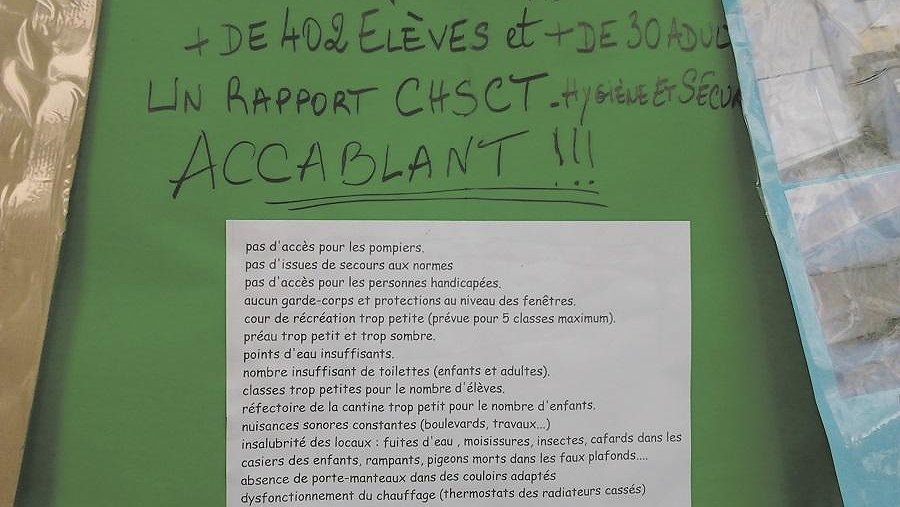 + DE 402 ELÈVES et + DE 30 ADUL
UN RAPPORT CHSCT - HYGIÈNE ET SÉCUR
ACCABLANT !!!
pas d'accès pour les pompiers.
pas d'issues de secours aux normes
pas d'accès pour les personnes handicapées.
aucun garde-corps et protections au niveau des fenêtres.
cour de récréation trop petite (prévue pour 5 classes maximum).
préau trop petit et trop sombre.
points d'eau insuffisants.
nombre insuffisant de toilettes (enfants et adultes).
classes trop petites pour le nombre d'élèves.
réfectoire de la cantine trop petit pour le nombre d'enfants.
nuisances sonores constantes (boulevards, travaux...)
insalubrité des locaux : fuites d'eau , moisissures, insectes, cafards dans les
casiers des enfants, rampants, pigeons morts dans les faux plafonds....
absence de porte-manteaux dans des couloirs adaptés
dysfonctionnement du chauffage (thermostats des radiateurs cassés)